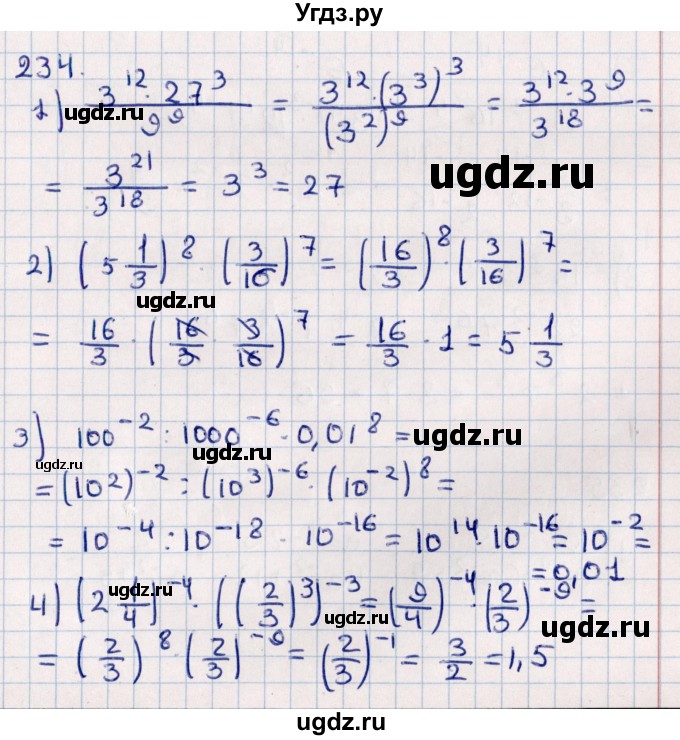 Угдз.ру
234.
1) 3^12 · 27^3 / 9^9 = 3^12 · (3^3)^3 / (3^2)^9 = 3^12 · 3^9 / 3^18 =
ugdz.ru
= 3^21 / 3^18 = 3^3 = 27
ugdz.ru
2) (5 1/3)^8 · (3/16)^7 = (16/3)^8 · (3/16)^7 =
ugdz.ru
= 16/3 · (16/3 · 3/16)^7 = 16/3 · 1 = 5 1/3
3) 100^-2 : 1000^-6 · 0,01^8 =
ugdz.ru ugdz.ru
= (10^2)^-2 : (10^3)^-6 · (10^-2)^8 =
= 10^-4 : 10^-18 · 10^-16 = 10^14 · 10^-16 = 10^-2 =
= 0,01
4) (2 1/4)^-4 · ((2/3)^3)^-3 = (9/4)^-4 · (2/3)^-9 =
ugdz.ru ugdz.ru ugdz.ru
= (2/3)^8 · (2/3)^-9 = (2/3)^-1 = 3/2 = 1,5
ugdz.ru